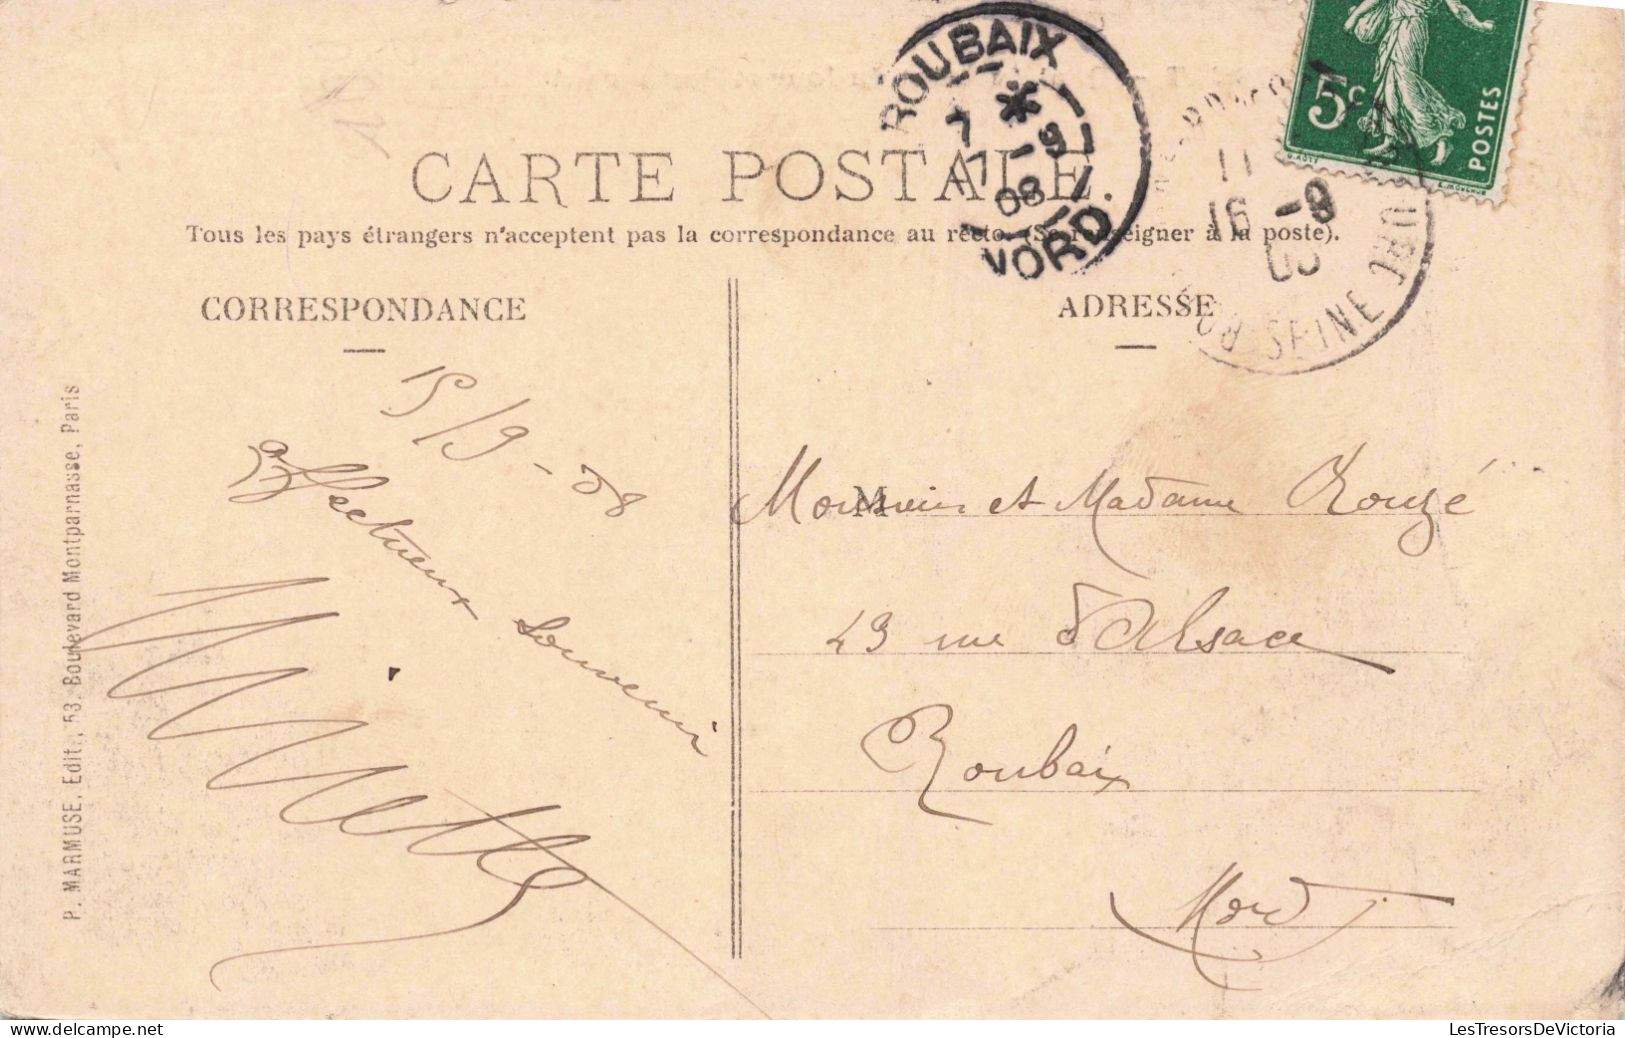 ROUBAIX
7 *
17 - 9
08
NORD
5c
POSTES
11
16 - 9
SEINE
CARTE POSTALE.
Tous les pays étrangers n'acceptent pas la correspondance au recto. (Se renseigner à la poste).
CORRESPONDANCE
15/9-08
affectueux souvenir
P. MARMUSE, Edit., 53, Boulevard Montparnasse, Paris
ADRESSE
M
Monsieur et Madame Rouzé
43 rue d'Alsace
Roubaix
Nord
LesTresorsDeVictoria